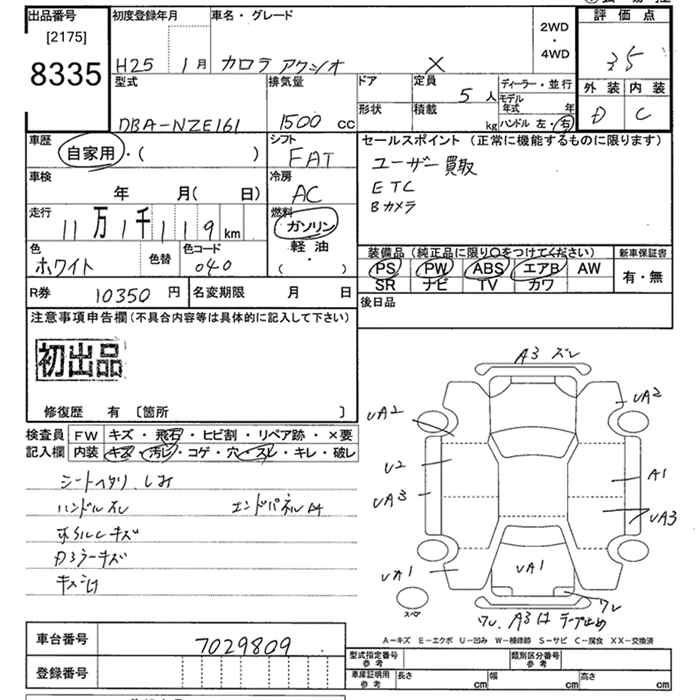 出品番号
[2175]
8335
初度登録年月
H25 1月
車名・グレード
カローラ アクシオ X
2WD
・
4WD
評価点
3.5
外装 内装
D C
型式
DBA-NZE161
排気量
1500 cc
ドア
定員
5人
形状
積載
kg
ディーラー・並行
モデル
年式 年
ハンドル 左・右
車歴
自家用・( )
シフト
FAT
セールスポイント(正常に機能するものに限ります)
ユーザー買取
ETC
Bカメラ
車検
年 月( 日)
冷房
AC
走行
11万1千119km
燃料
ガソリン
軽油
( )
色
ホワイト
色替
色コード
040
装備品(純正品に限り〇をつけてください)
PS PW ABS エアB AW
SR ナビ TV カワ
新車保証書
有・無
R券 10350円
名変期限 月 日
後日品
注意事項申告欄(不具合内容等は具体的に記入して下さい)
初出品
修復歴 有 〔箇所 〕
検査員
記入欄
FW キズ・飛石・ヒビ割・リペア跡・×要
内装 キズ・汚レ・コゲ・穴・スレ・キレ・破レ
シートヘタリ、しみ
ハンドルスレ
エンドパネルA4
ホイルLキズ
ドアミラーキズ
A3 ズレ
UA2
UA2
U2
UA3
A1
UA3
UA1
UA1
ワレ
ワレ、A3はテープ止め
スペア
A-キズ E-エクボ U-凹み W-補修跡 S-サビ C-腐食 XX-交換済
車台番号 7029809
登録番号
型式指定番号
参考
類別区分番号
参考
車庫証明用
参考
長さ cm
幅 cm
高さ cm